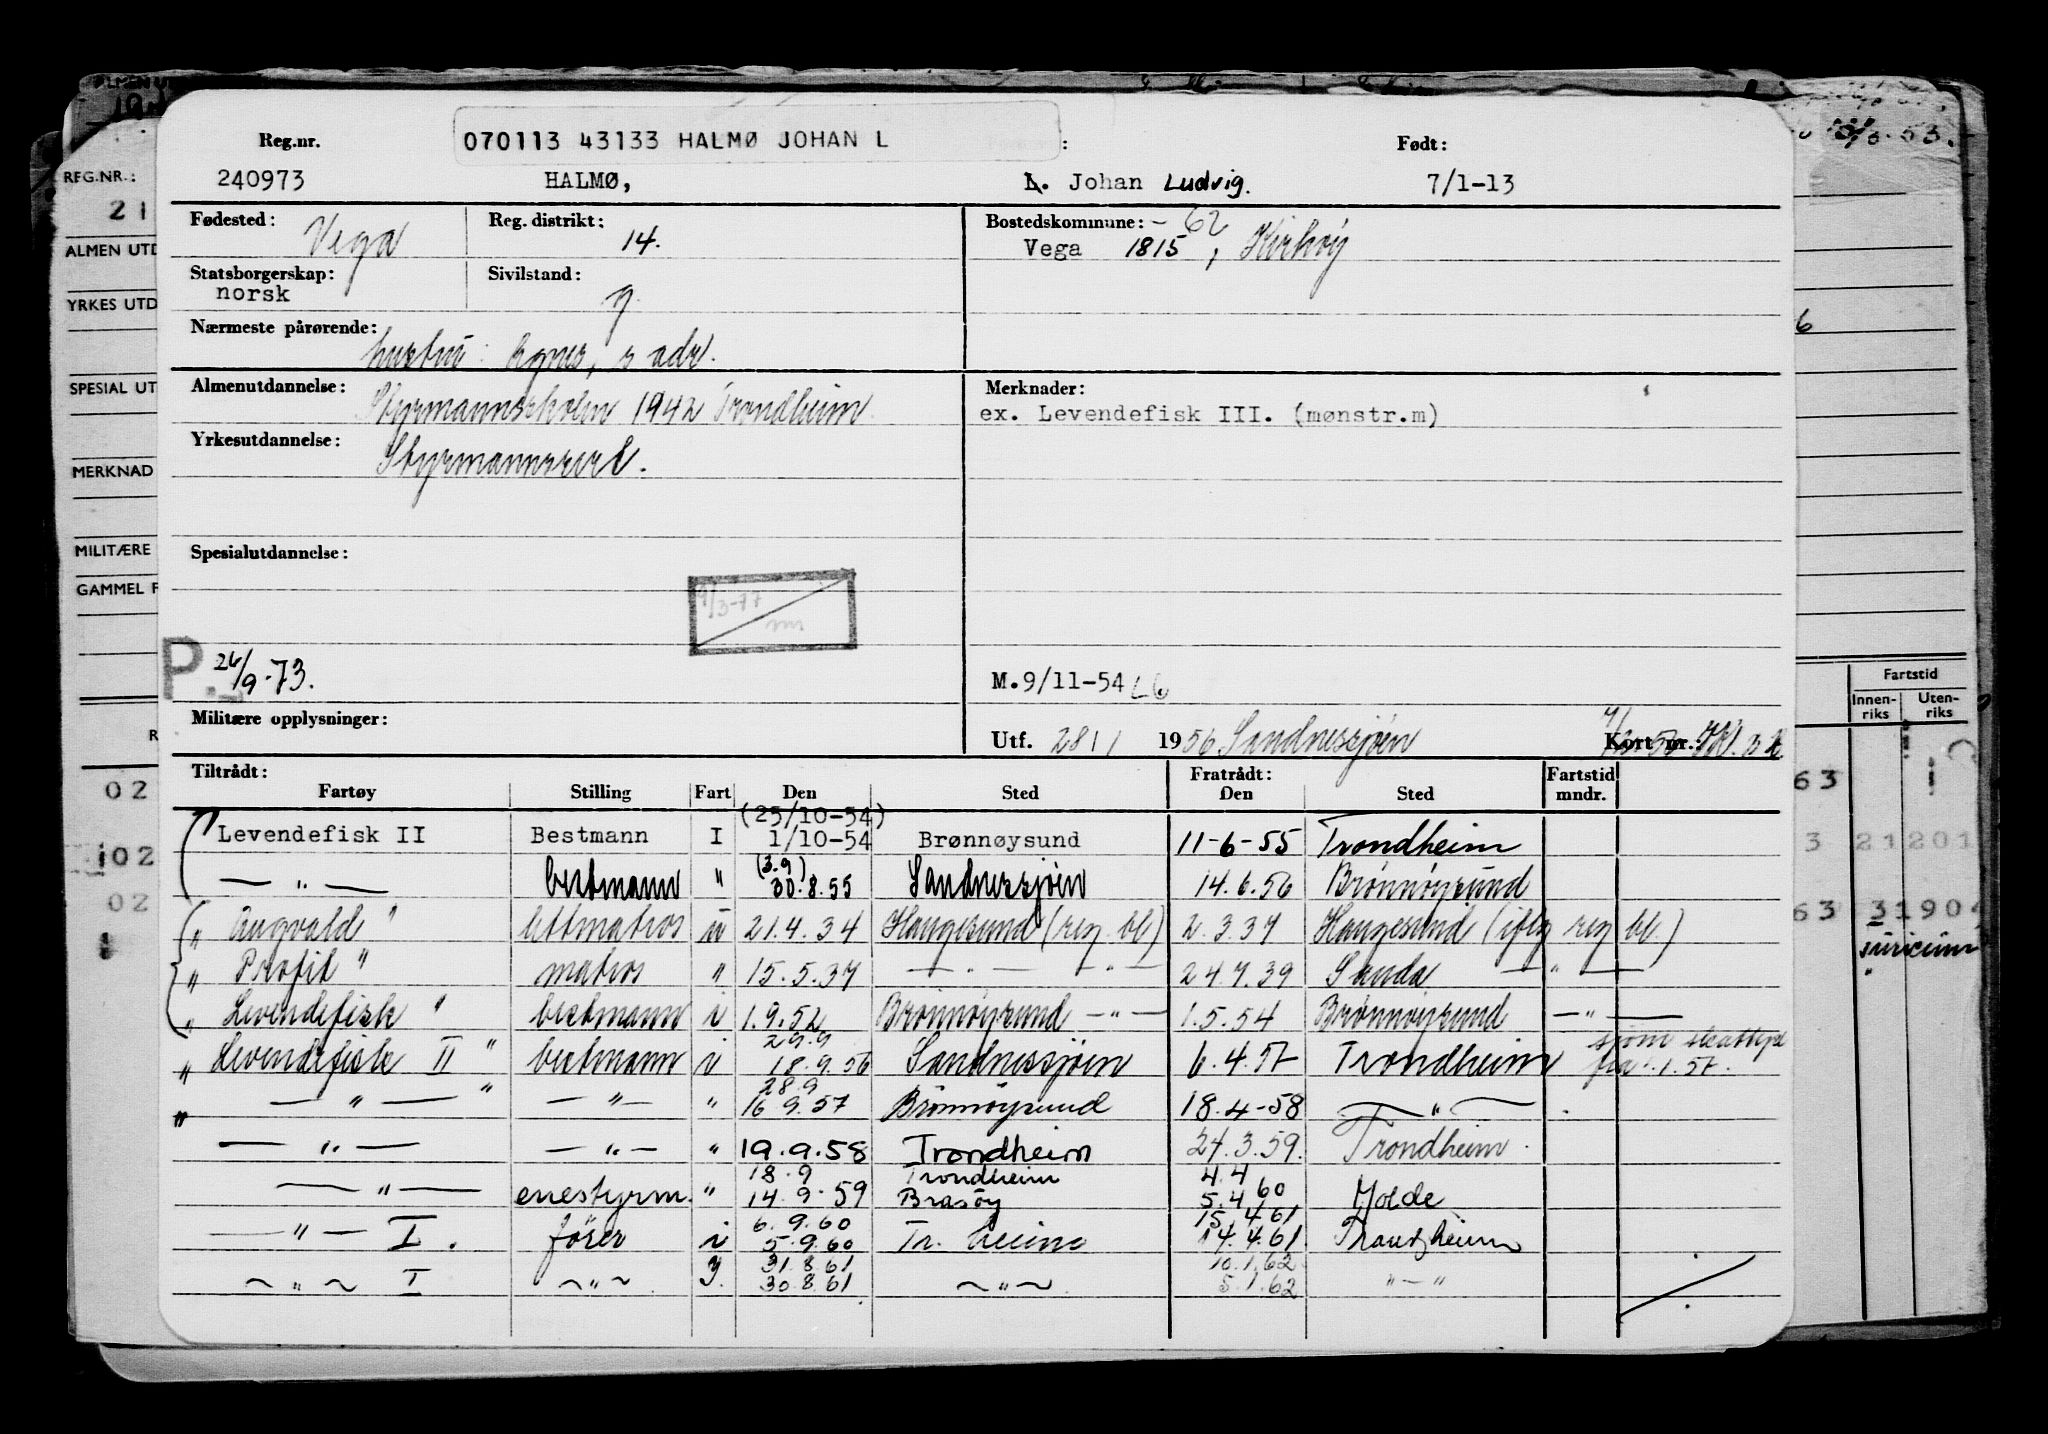 Reg.nr.
070113 43133 HALMØ JOHAN L
Født:
240973
HALMØ,
L. Johan Ludvig.
7/1-13
Fødested: Vega
Reg. distrikt: 14.
Bostedskommune: -62
Vega 1815, Kirkøy
Statsborgerskap: norsk
Sivilstand: g.
Nærmeste pårørende: hustru: Agnes, s adr.
Almenutdannelse: Styrmannsskolen 1942 Trondheim
Merknader:
ex. Levendefisk III. (mønstr.m)
Yrkesutdannelse: Styrmannssert.
Spesialutdannelse:
9/3-77
P. 26/9-73.
M.9/11-54
Militære opplysninger:
Utf. 28/1 1956 Sandnessjøen
Kort nr.:
Tiltrådt:
Fratrådt:
Fartstid
Fartøy Stilling Fart Den Sted Den Sted mndr.
(25/10-54)
Levendefisk II Bestmann I 1/10-54 Brønnøysund 11-6-55 Trondheim
(3.9)
— " — bestmann " 30.8.55 Sandnessjøen 14.6.56 Brønnøysund
" Augvald " lettmatros u 21.4.34 Haugesund (reg. bl) 2.3.37 Haugesund (iflg reg bl.)
" Profit " matros " 15.5.37 — " — — " — 24.7.39 Sanda — " —
" Levendefisk " bestmann i 1.9.52 Brønnøysund — " — 1.5.54 Brønnøysund — " —
29.9
" Levendefisk II " bestmann i 18.9.56 Sandnessjøen 6.4.57 Trondheim
fra 1.1.57.
28.9
" — " — " — " — " 16 9.57 Brønnøysund 18.4-58 — " —
— " — — " — " 19.9.58 Trondheim 24.3.59. Trondheim.
18.9 Trondheim 4.4
— " — enestyrm. " 14.9.59 Brasøy 5.4 60 Molde
6.9.60 15.4 61
— " — I. fører i 5.9.60 Tr. heim 14.4.61. Trondheim
31.8.61 10.1.62
~ " ~ I ~ " ~ 30.8.61 ~ " ~ 5.1.62 " — "
REG.NR.:
21
ALMEN UTD
YRKES UTD
SPESIAL UT
MERKNAD
MILITÆRE
GAMMEL F
R
02
02
02
Fartstid
Innen-
riks
Uten-
riks
63
3 21 201
63 3 1904